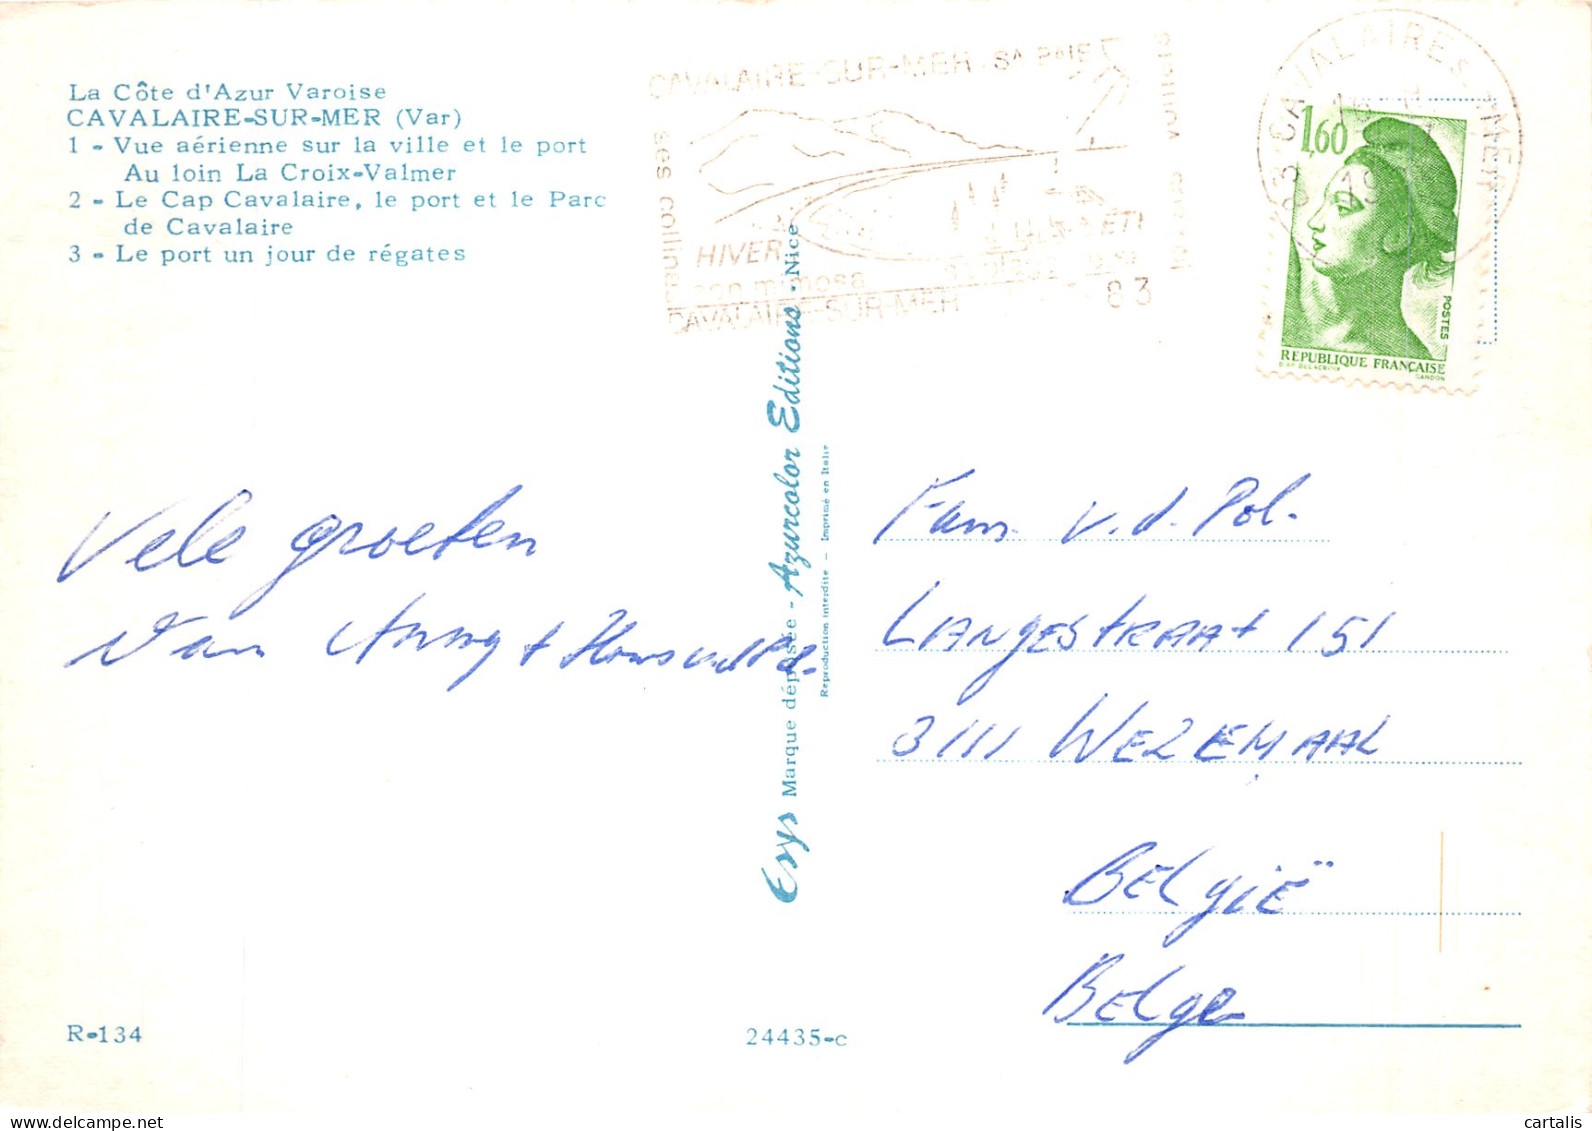 La Côte d'Azur Varoise
CAVALAIRE-SUR-MER (Var)
1 - Vue aérienne sur la ville et le port
Au loin La Croix-Valmer
2 - Le Cap Cavalaire, le port et le Parc
de Cavalaire
3 - Le port un jour de régates
CAVALAIRE-SUR-MER SA BAIE
ses collines
HIVER
son mimosa
CAVALAIRE-SUR-MER
83
83 CAVALAIRE S MER
1,60
POSTES
REPUBLIQUE FRANÇAISE
D'AP. DELACROIX GANDON
Vele groeten
Van
Fam. v.d. Pol.
LANGESTRAAT 151
3111 WEZEMAAL
BELGIË
BELge
Marque déposée - Azurcolor Editions - Nice
Reproduction interdite - Imprimé en Italie
R-134
24435-c
www.delcampe.net
cartalis